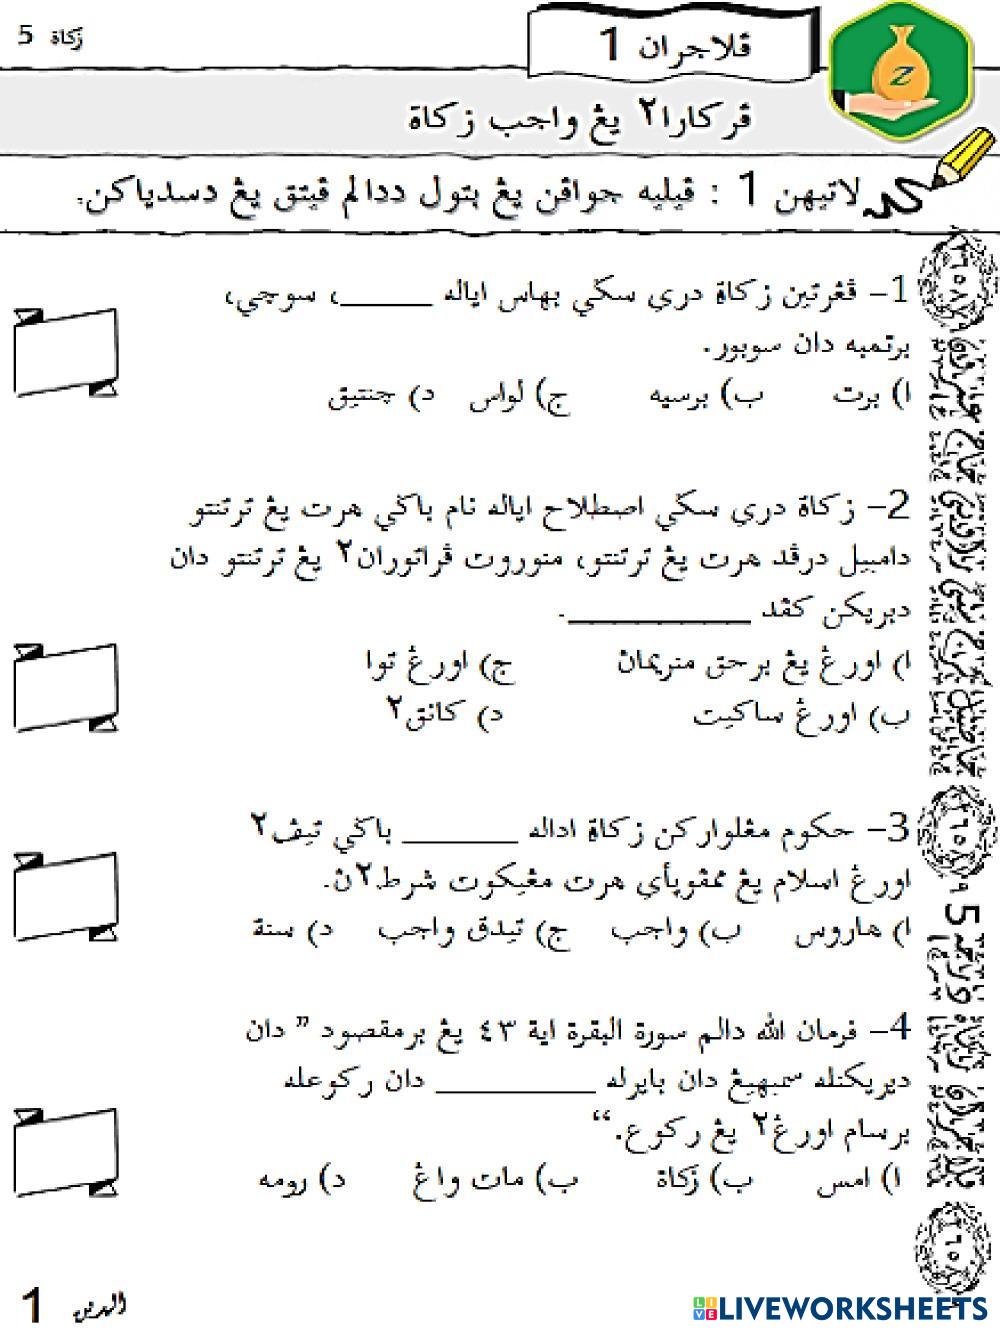 زكاة 5
ڤلاجرن 1
Z
ڤركارا٢ يڠ واجب زكاة
لاتيهن 1 : ڤيليه جواڤن يڠ بتول ددالم ڤيتق يڠ دسدياكن.
1- ڤڠرتين زكاة دري سݢي بهاس اياله ______، سوچي،
برتمبه دان سوبور.
ا) برت ب) برسيه ج) لواس د) چنتيق
2- زكاة دري سݢي اصطلاح اياله نام باݢي هرت يڠ ترتنتو
دامبيل درڤد هرت يڠ ترتنتو، منوروت ڤراتوران٢ يڠ ترتنتو دان
دبريكن كڤد ____________.
ا) اورڠ يڠ برحق منريمان ج) اورڠ توا
ب) اورڠ ساكيت د) كانق٢
3- حكوم مڠلواركن زكاة اداله ________ باݢي تيڤ٢
اورڠ اسلام يڠ ممڤوڽاءي هرت مڠيكوت شرط٢ڽ.
ا) هاروس ب) واجب ج) تيدق واجب د) سنة
4- فرمان الله دالم سورة البقرة اية ٤٣ يڠ برمقصود ” دان
ديريكنله سمبهيڠ دان بايرله ___________ دان ركوعله
برسام اورڠ٢ يڠ ركوع.“
ا) امس ب) زكاة ب) مات واڠ د) رومه
1
LIVEWORKSHEETS